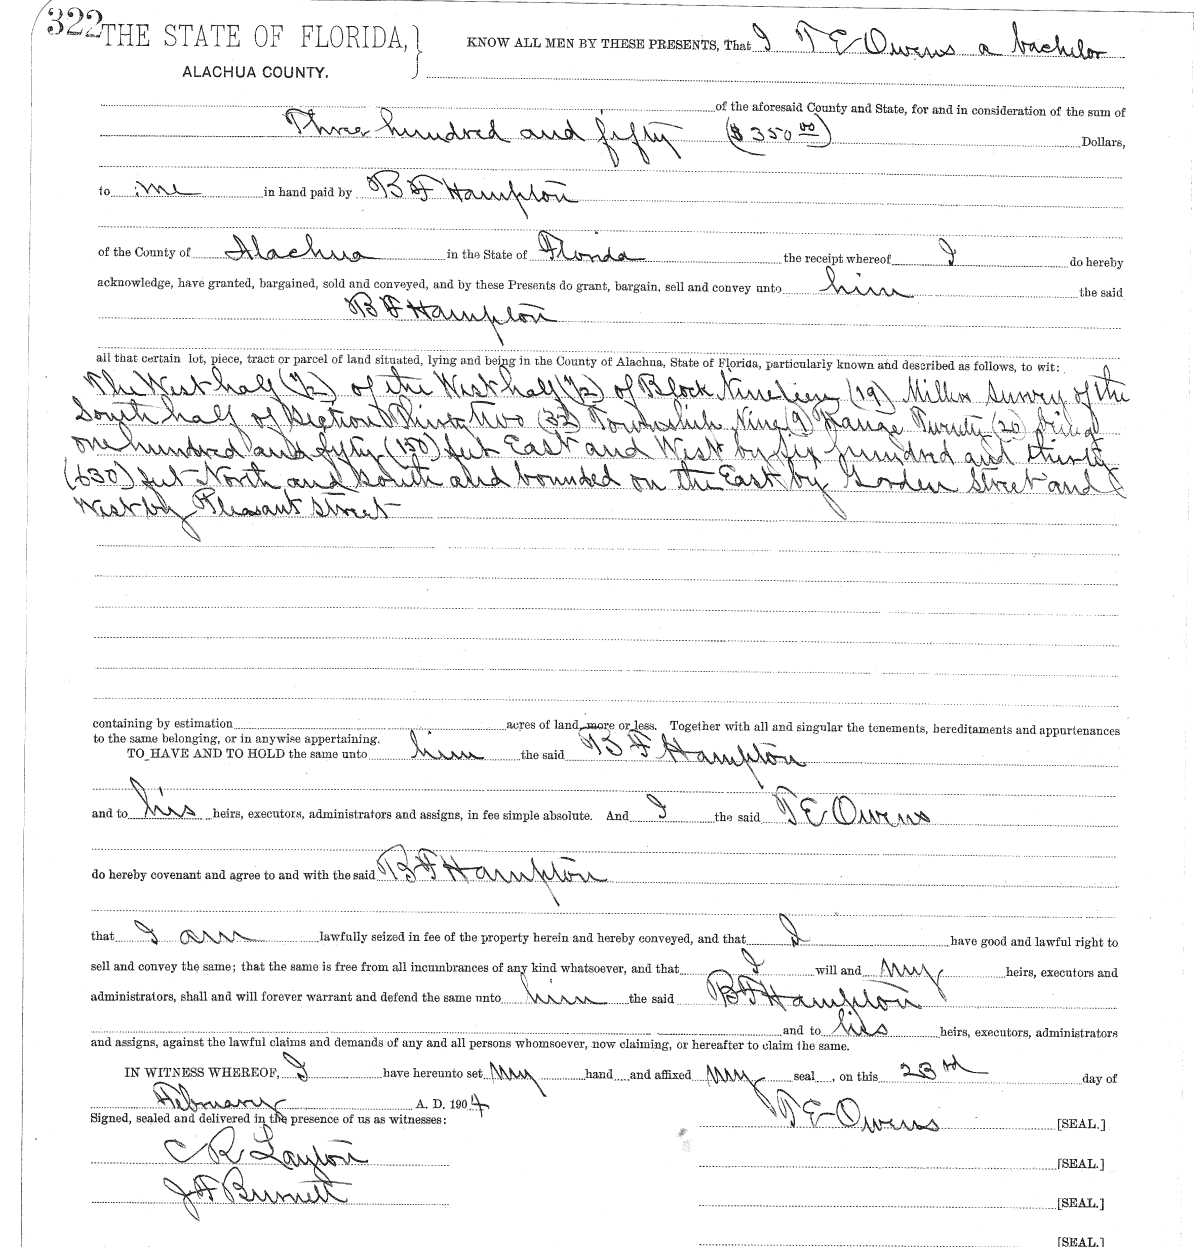 322
THE STATE OF FLORIDA,
ALACHUA COUNTY.
KNOW ALL MEN BY THESE PRESENTS, That I T E Owens a bachelor
of the aforesaid County and State, for and in consideration of the sum of
Three hundred and fifty ($350.00) Dollars,
to me in hand paid by B F Hampton
of the County of Alachua in the State of Florida the receipt whereof I do hereby
acknowledge, have granted, bargained, sold and conveyed, and by these Presents do grant, bargain, sell and convey unto him the said
B F Hampton
all that certain lot, piece, tract or parcel of land situated, lying and being in the County of Alachua, State of Florida, particularly known and described as follows, to wit:
The West half (1/2) of the West half (1/2) of Block Nineteen (19) Survey of the
South half of Section Thirty two (32) Township Nine (9) Range Twenty (20) being
one hundred and fifty (150) feet East and West by six hundred and thirty
(630) feet North and South and bounded on the East by Street and
West by Pleasant Street
containing by estimation acres of land, more or less. Together with all and singular the tenements, hereditaments and appurtenances
to the same belonging, or in anywise appertaining.
TO HAVE AND TO HOLD the same unto him the said B F Hampton
and to his heirs, executors, administrators and assigns, in fee simple absolute. And I the said T E Owens
do hereby covenant and agree to and with the said B F Hampton
that I am lawfully seized in fee of the property herein and hereby conveyed, and that I have good and lawful right to
sell and convey the same; that the same is free from all incumbrances of any kind whatsoever, and that I will and my heirs, executors and
administrators, shall and will forever warrant and defend the same unto him the said B F Hampton
and to his heirs, executors, administrators
and assigns, against the lawful claims and demands of any and all persons whomsoever, now claiming, or hereafter to claim the same.
IN WITNESS WHEREOF, I have hereunto set my hand and affixed my seal, on this 23rd day of
February A. D. 1904
Signed, sealed and delivered in the presence of us as witnesses:
T E Owens [SEAL.]
C R Layton [SEAL.]
J F Burnett [SEAL.]
[SEAL.]